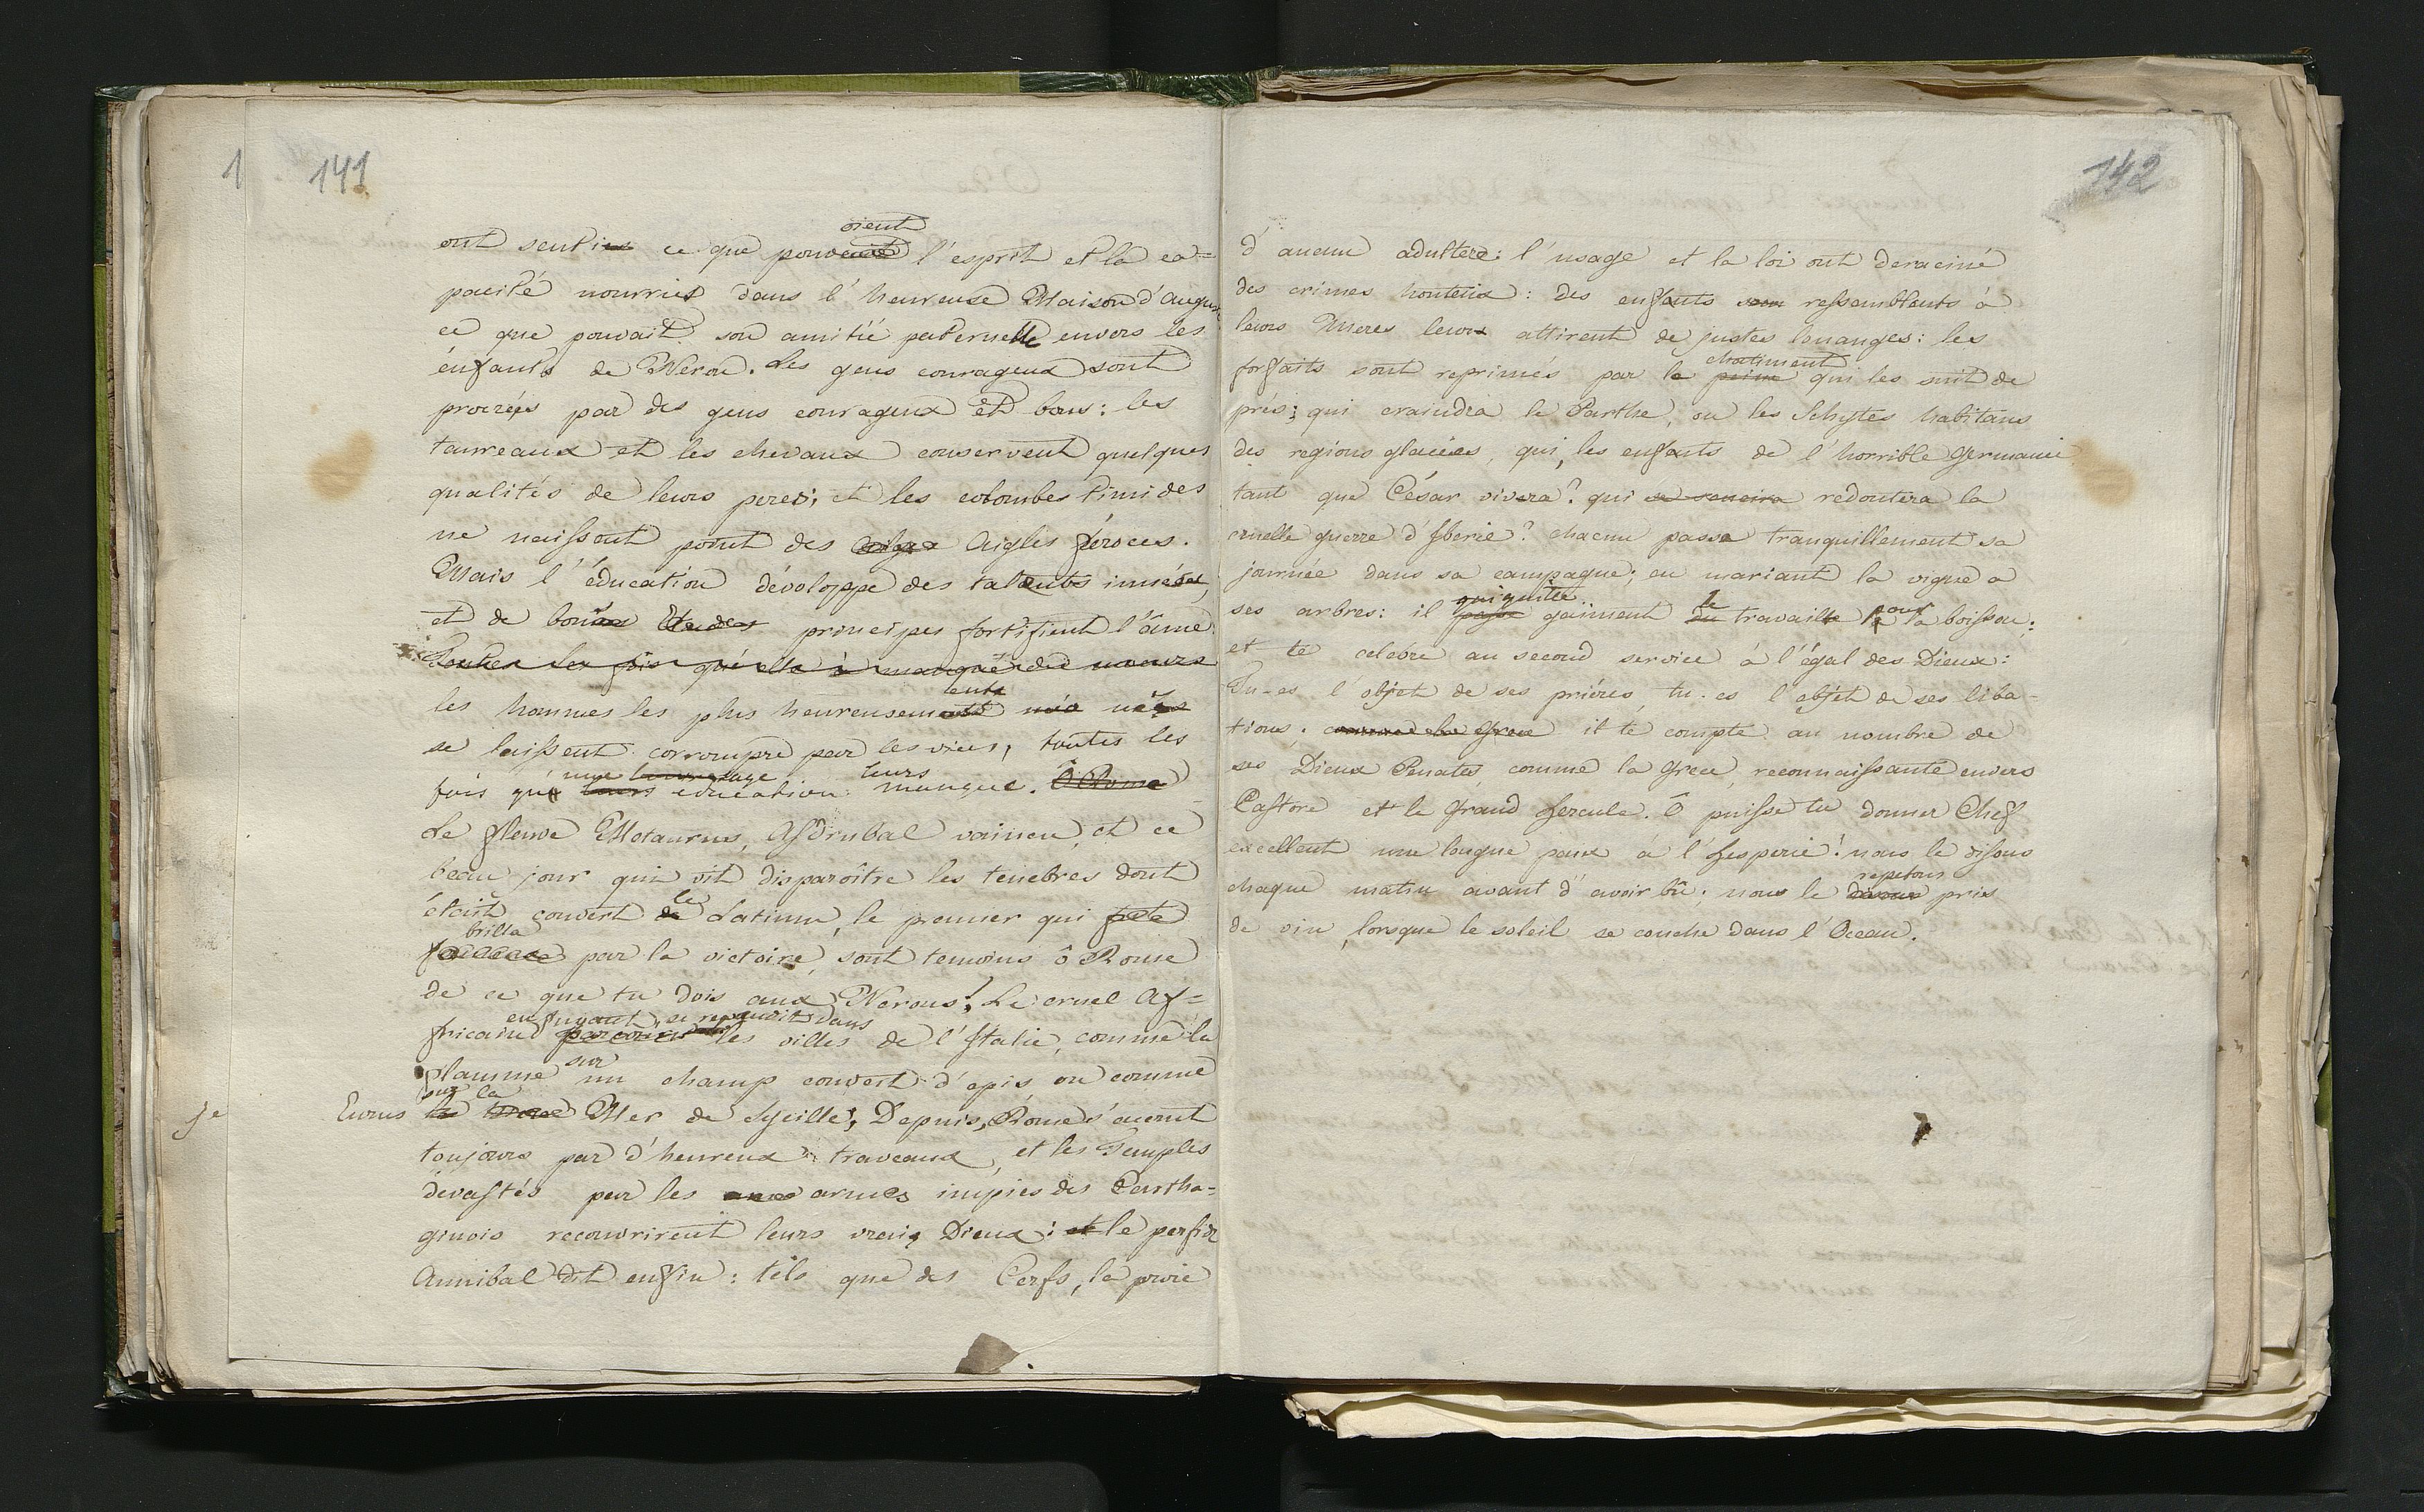 1
141
oient
ont senti ce que pouvait l'esprit et la ca=
pacité nourries dans l'heureuse Maison d'Augus
ce que pouvait son amitié paternelle envers les
énfants de Neron. Les gens courageux sont
procréés par des gens courageux et bons: les
taureaux et les chevaux conservent quelques
qualités de leurs peres; et les colombes timides
ne naissent point des Aigles féroces.
Mais l'éducation dévoloppe des talents innés,
et de bons principes fortifient l'âme
Toutes les fois qu'elle à manqué de moeurs
ents
les hommes les plus heureusement nés
se laissent corrompre par les vices, toutes les
une leurs
fois que leurs education manque. Ô Rome
Le fleuve Metaurus, Asdrubal vaincu, et ce
beau jour qui vit disparoître les tenebres dont
le
était couvert de Latium, le premier qui fete
brilla
par la victoire, sont temoins ô Rome
de ce que tu dois aux Nerons! Le cruel Af=
en fuyant, se repandit dans
fricain parcourut les villes de l'Italie, comme la
sur
flamme un champ couvert d'epis ou comme
sur la
je
Eurus la Mer de Sycille; Depuis, Rome s'accrut
toujours par d'heureux travaux, et les Temples
dévastés par les armes impies des Cartha=
ginois recouvrirent leurs vrais Dieux: et le perfid
Annibal dit enfin: tels que des Cerfs, la proie
142
d'aucun adultere: l'usage et la loi ont deraciné
des crimes honteux: des enfants ressemblants à
leurs Meres leurs attirent de justes louanges: les
chatiment
forfaits sont reprimés par le peine qui les suit de
prés; qui craindra le Parthe, ou les Schytes habitans
des regions glacées, qui, les enfants de l'horrible Germanie
tant que César vivera? qui se soucira redoutera la
cruelle guerre d'Iberie? chacun passe tranquillement sa
journée dans sa campagne; en mariant la vigne a
qui quitte le pour
ses arbres: il passe gaîment du travaille à la boisson:
et te celebre au second service à l'égal des Dieux:
Tu-es l'objet de ses priéres, tu-es l'objet de ses liba-
tions; comme la Grece il te compte au nombre de
ses Dieux Penates comme la Grece reconnaissante envers
Castore et le Grand Hercule. Ô puisse tu donner Chef
excellent une longue paix à l'Hesperie! nous le disons
repetons
chaque matin avant d'avoir bû; nous le disons pris
de vin, lorsque le soleil se couche dans l'Ocean.